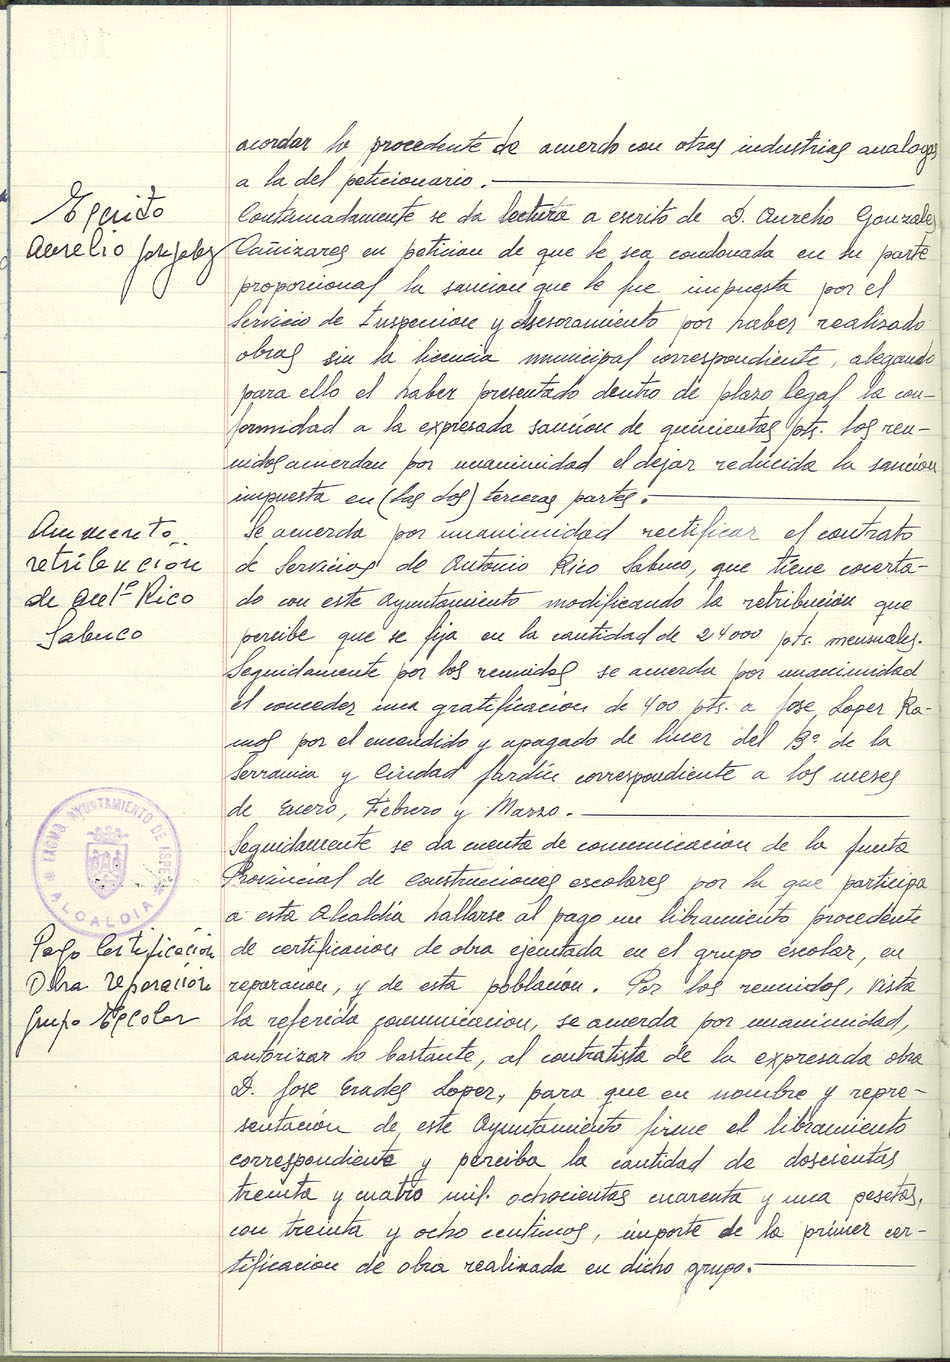 acordar lo procedente de acuerdo con otras industrias analogas
a la del peticionario.
Escrito
Aurelio Gonzalez
Continuadamente se da lectura a escrito de D. Aurelio Gonzalez
Cañizares en peticion de que le sea condonada en su parte
proporcional la sancion que le fue impuesta por el
Servicio de Inspeccion y Asesoramiento por haber realizado
obras sin la licencia municipal correspondiente, alegando
para ello el haber presentado dentro de plazo legal la con-
formidad a la expresada sanción de quinientas pts. Los reu-
nidos acuerdan por unanimidad el dejar reducida la sancion
impuesta en (las dos) terceras partes.
Aumento
retribución
de Antº Rico
Sabuco
Se acuerda por unanimidad rectificar el contrato
de Servicios de Antonio Rico Sabuco, que tiene concerta-
do con este Ayuntamiento modificando la retribución que
percibe que se fija en la cantidad de 24000 pts. mensuales.
Seguidamente por los reunidos se acuerda por unanimidad
el conceder una gratificacion de 400 pts. a Jose Lopez Ra-
mos por el encendido y apagado de luces del Bº de la
Serranica y Ciudad Jardin correspondiente a los meses
de Enero, Febrero y Marzo.
EXCMO. AYUNTAMIENTO DE ASPE
ALCALDIA
Seguidamente se da cuenta de comunicacion de la Junta
Provincial de Construcciones escolares por la que participa
a esta Alcaldía hallarse al pago un libramiento procedente
Pago Certificación
Obra reparación
Grupo Escolar
de certificacion de obra ejecutada en el grupo escolar, en
reparacion, y de esta población. Por los reunidos, vista
la referida comunicacion, se acuerda por unanimidad,
autorizar lo bastante, al contratista de la expresada obra
D. Jose Erades Lopez, para que en nombre y repre-
sentación de este Ayuntamiento firme el libramiento
correspondiente y perciba la cantidad de doscientas
treinta y cuatro mil ochocientas cuarenta y una pesetas,
con treinta y ocho centimos, importe de la primer cer-
tificacion de obra realizada en dicho grupo.